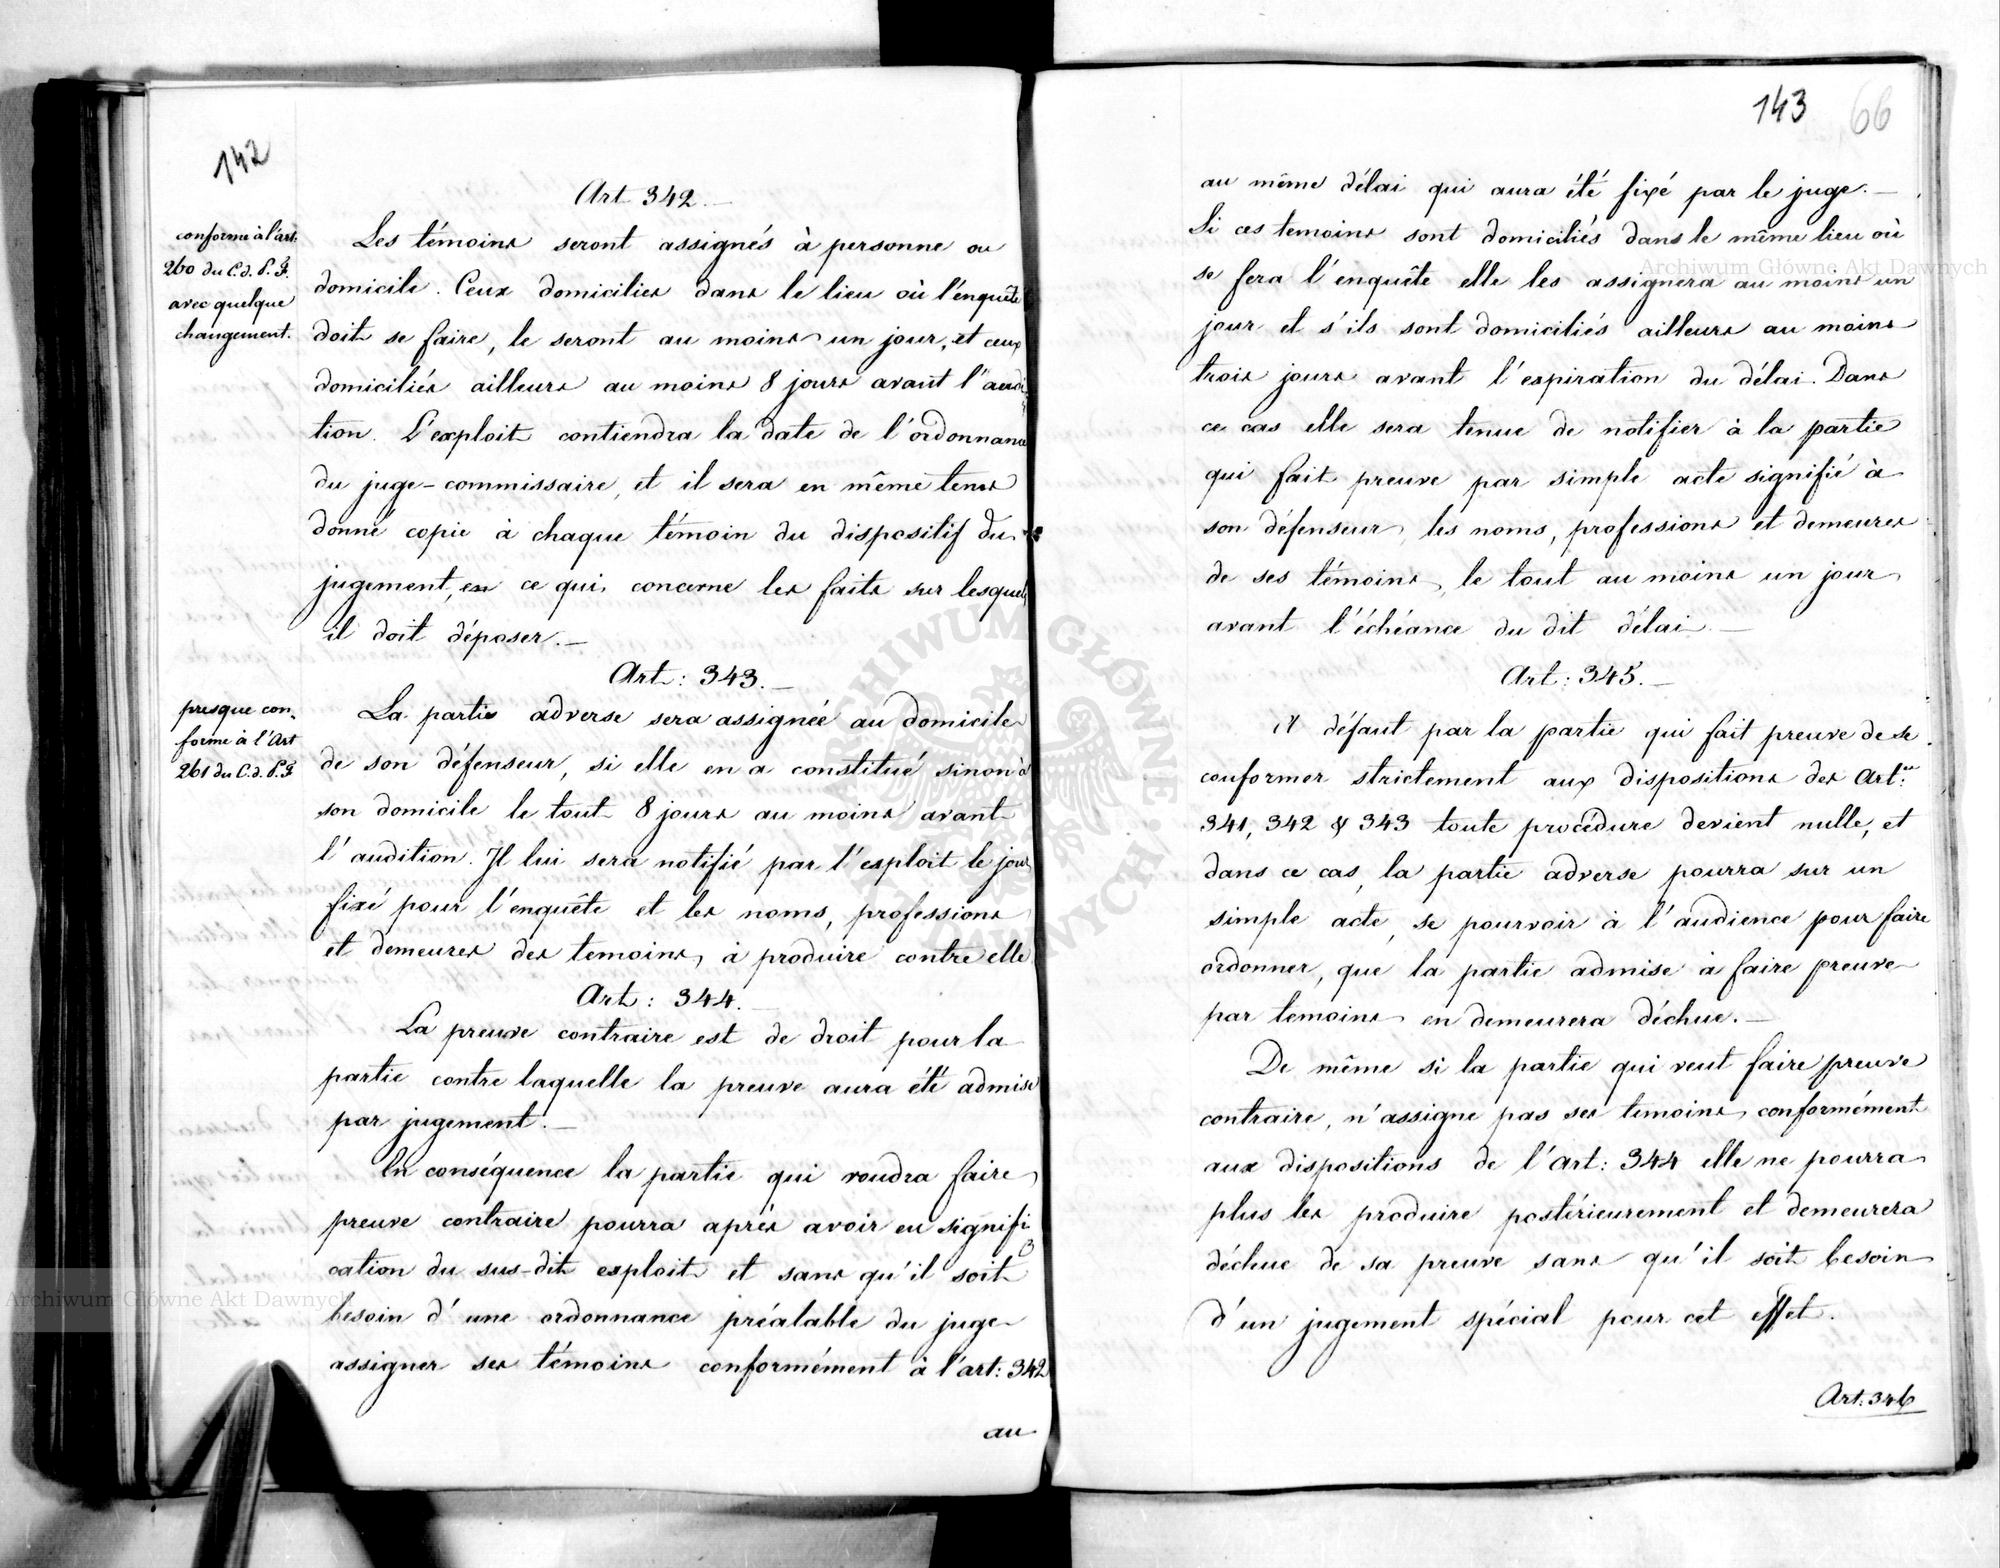 142
Art 342.—
conforme à l'art.
260 du C. d. P. F.
avec quelque
changement.
Les témoins seront assignés à personne ou
domicile. Ceux domiciliés dans le lieu où l'enquête
doit se faire, le seront au moins un jour, et ceux
domiciliés ailleurs au moins 8 jours avant l'audi-
tion. L'exploit contiendra la date de l'ordonnance
du juge-commissaire, et il sera en même tems
donné copie à chaque témoin du dispositif du
jugement, en ce qui concerne les faits sur lesquels
il doit déposer.—
Art: 343.—
presque con-
forme à l'Art
261 du C. d. P. F
La partie adverse sera assignée au domicile
de son défenseur, si elle en a constitué sinon à
son domicile le tout 8 jours au moins avant
l'audition. Il lui sera notifié par l'exploit le jour
fixé pour l'enquête et les noms, professions
et demeures des temoins, à produire contre elle
Art: 344.—
La preuve contraire est de droit pour la
partie contre laquelle la preuve aura été admise
par jugement.—
En conséquence la partie qui voudra faire
preuve contraire pourra après avoir eu signifi
cation du sus-dit exploit et sans qu'il soit
besoin d'une ordonnance préalable du juge
assigner ses témoins conformément à l'art: 342
au
143 66
au même délai qui aura été fixé par le juge.—
Si ces temoins sont domiciliés dans le même lieu où
se fera l'enquête elle les assignera au moins un
jour et s'ils sont domiciliés ailleurs au moins
trois jours avant l'expiration du délai. Dans
ce cas elle sera tenue de notifier à la partie
qui fait preuve par simple acte signifié à
son défenseur, les noms, professions et demeures
de ses témoins, le tout au moins un jour
avant l'échéance du dit délai.—
Art: 345.—
A défaut par la partie qui fait preuve de se
conformer strictement aux dispositions des Art:
341, 342 & 343 toute procédure devient nulle, et
dans ce cas, la partie adverse pourra sur un
simple acte, se pourvoir à l'audience pour faire
ordonner, que la partie admise à faire preuve
par temoins en demeurera déchue.—
De même si la partie qui veut faire preuve
contraire, n'assigne pas ses temoins, conformément
aux dispositions de l'Art: 344 elle ne pourra
plus les produire postérieurement et demeurera
déchue de sa preuve sans qu'il soit besoin
d'un jugement spécial pour cet effet.
Art: 346
Archiwum Główne Akt Dawnych
Archiwum Główne Akt Dawnych
ARCHIWUM GŁÓWNE AKT DAWNYCH